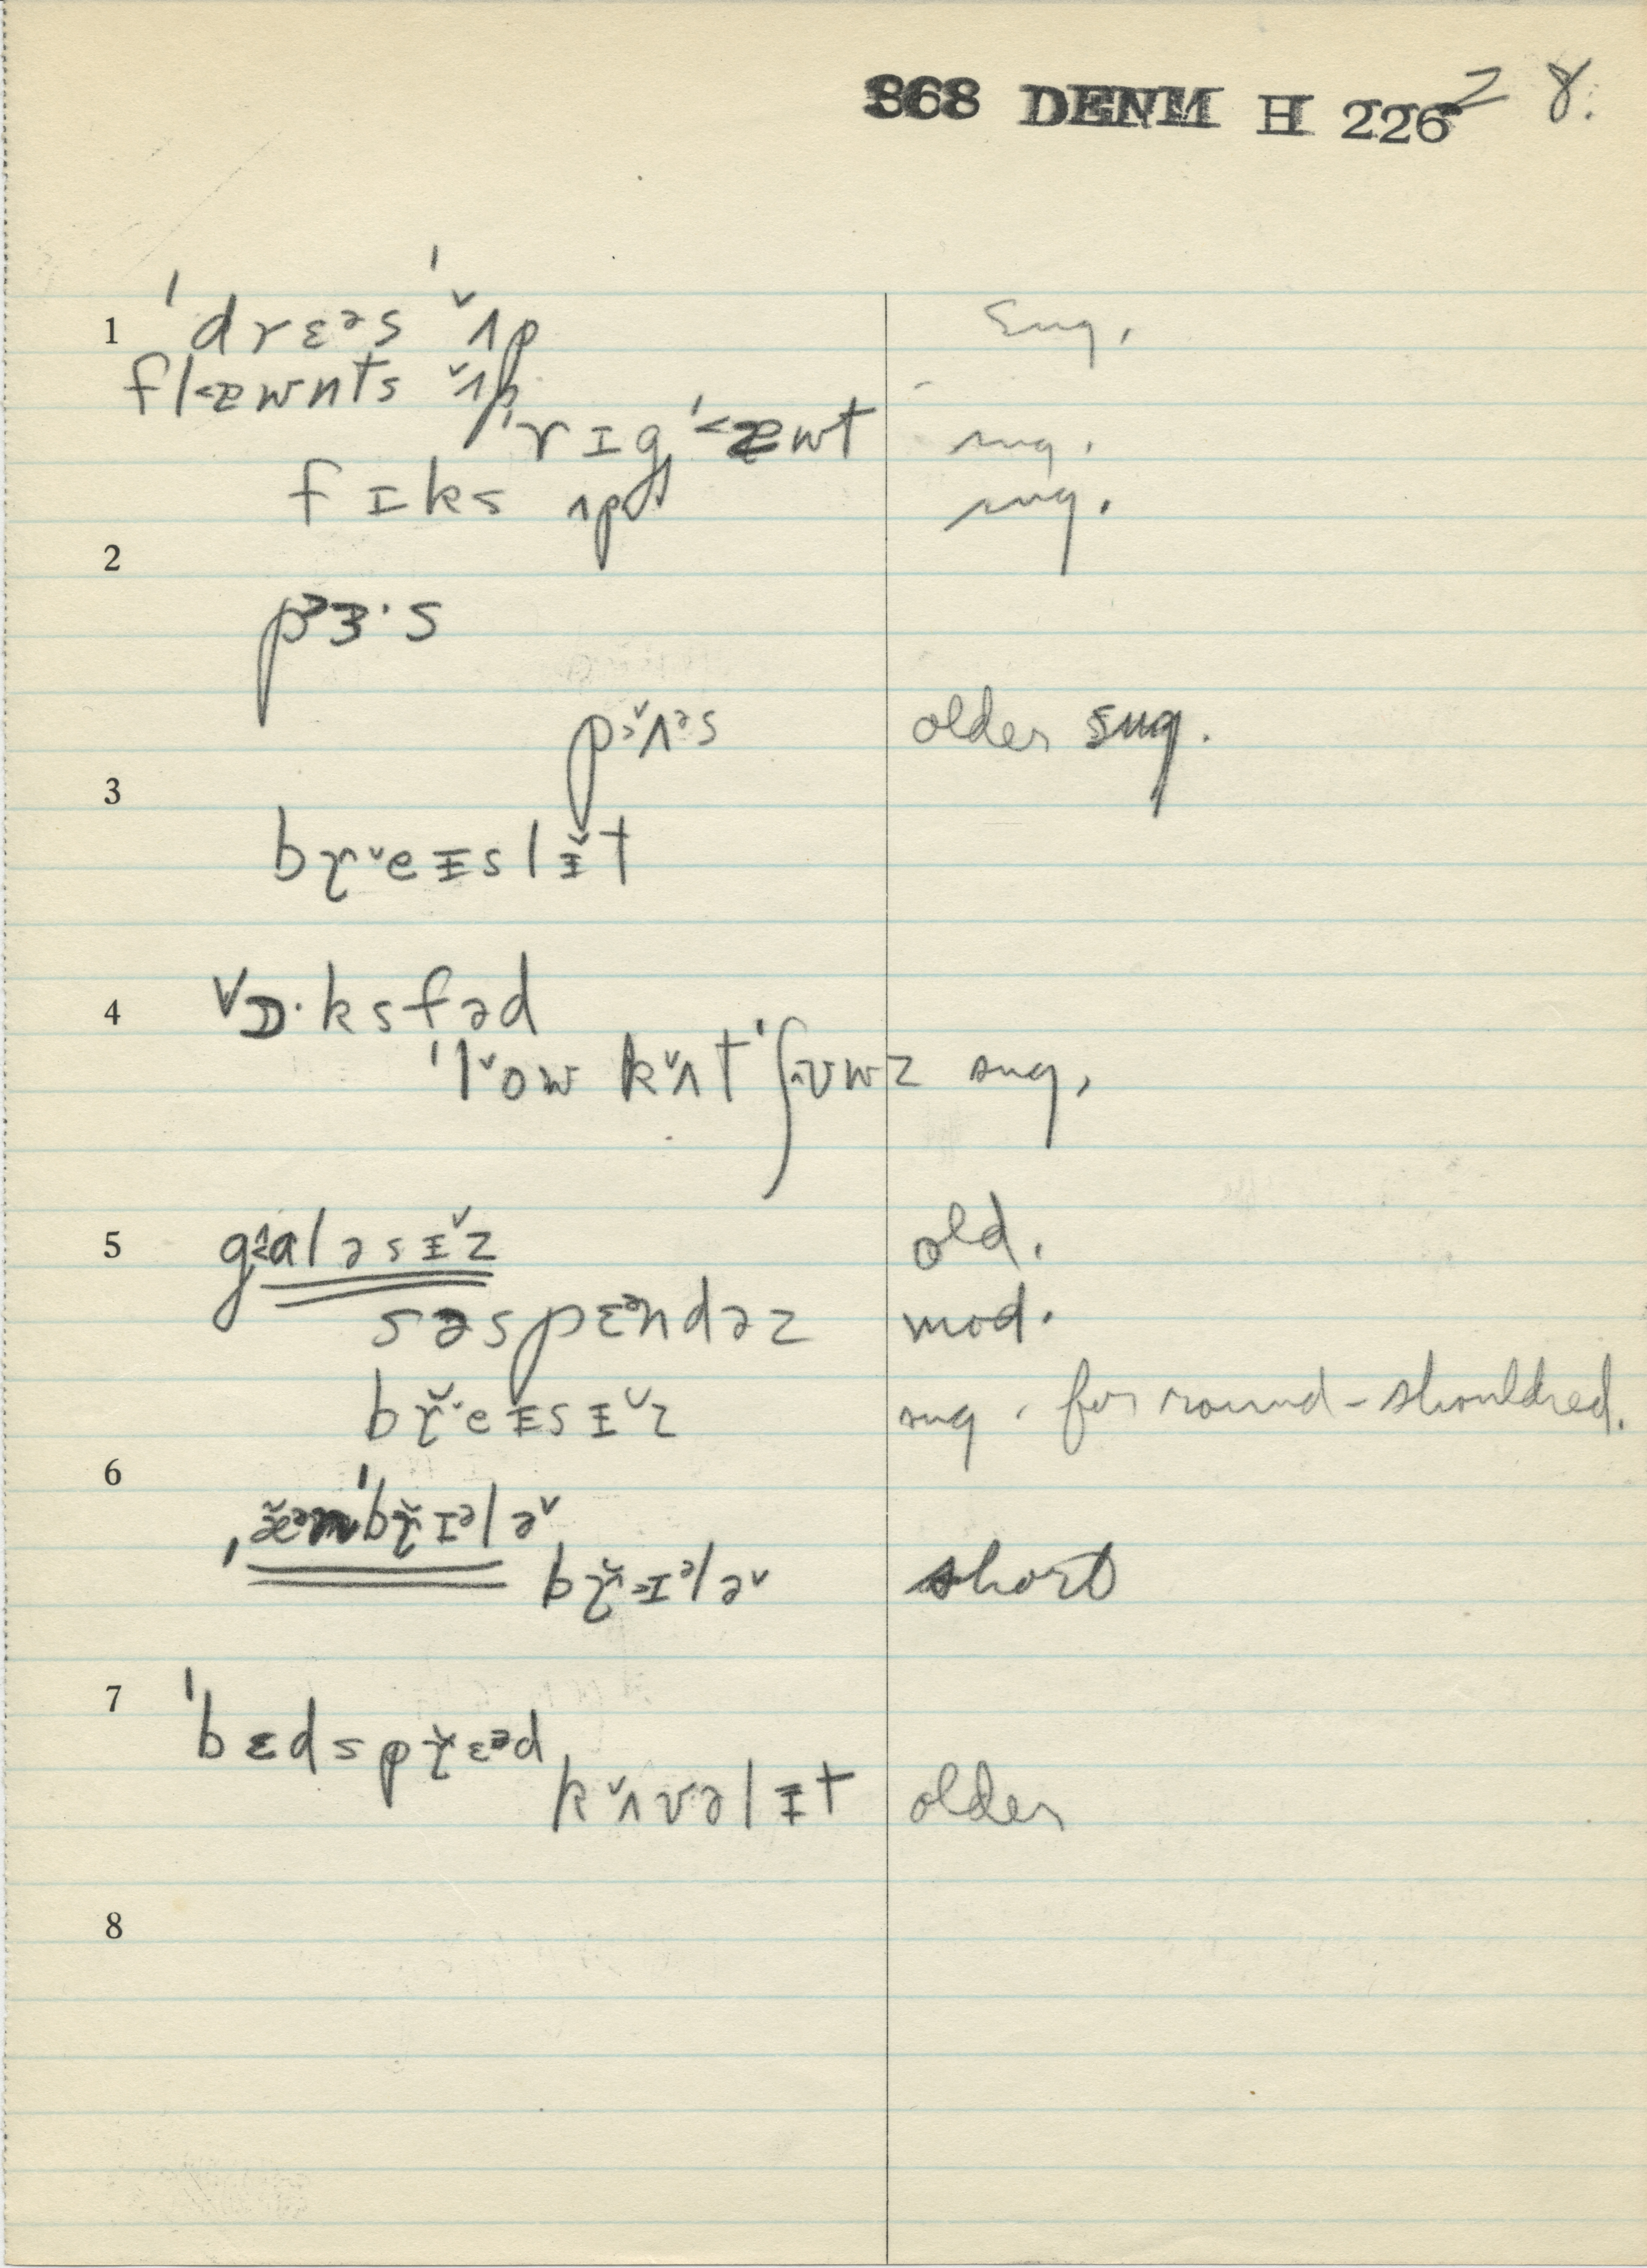 368 DENM H 226 2 8.
1 ˈdrɛᵊs ˈʌ̌p Sug.
flæwnts ʌ̌p
ˈrɪgˈæwt sug.
fɪks ʌp sug.
2
pᵊɜ·s
pɜ̌ʌᵊs older sug.
3
bɽˇeɪslɨ̌t
4 vɒ·ksfəd
ˈlˇow kʌ̌tˈʃʊwz sug.
5 galəsɨˇz old.
səspɛᵊndəz mod.
bɽˇeɪsɨˇz sug. for round-shouldred.
6
ˌæ̌ᵊmˈbɽ̌ɪᵊləˇ
bɽ̌ɪᵊləˇ short
7 ˈbɛdspɽ̌ɛᵊd
kʌ̌vəlɨt older
8